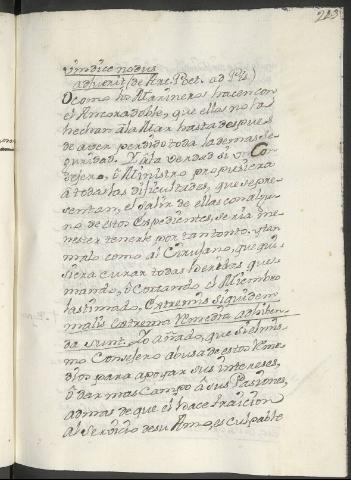 213
vindice nodus
adfuerit (de Arc. Poet. ad Pis.)
O como los Marineros hacen con
el Ancora doble, que ellos no la
hechan à la Mar hasta despues
de aver perdido toda la demas se-
guridad. Y à la verdad si un Con-
sejero, ô Ministro propusiera
à todas las dificultades, que se pre-
sentan, el salir de ellas con algu-
no de estos Expedientes, seria me-
nester tenerle por tan tonto, y tan
malo como al Cirujano, que qui-
siera curar todas heridas que-
mando, ô Cortando el Miembro
lastimado, Extremis siquidem
malis extrema Remedia adhiben-
da sunt. Yo añado, que si el mis-
mo Consejero abusa de estos Reme-
dios para apoyar sus intereses,
ô dar mas Campo â sus Pasiones,
ademas de que el hace traicion
al Servicio de su Amo, es culpable